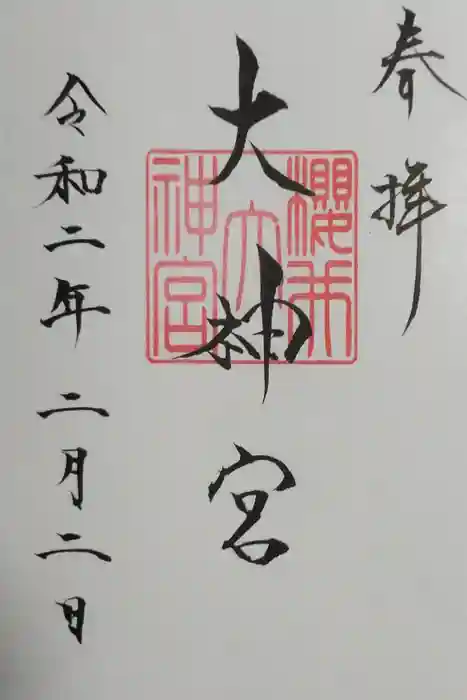 奉拝
大神宮
櫻木
大
神宮
令和二年二月二日